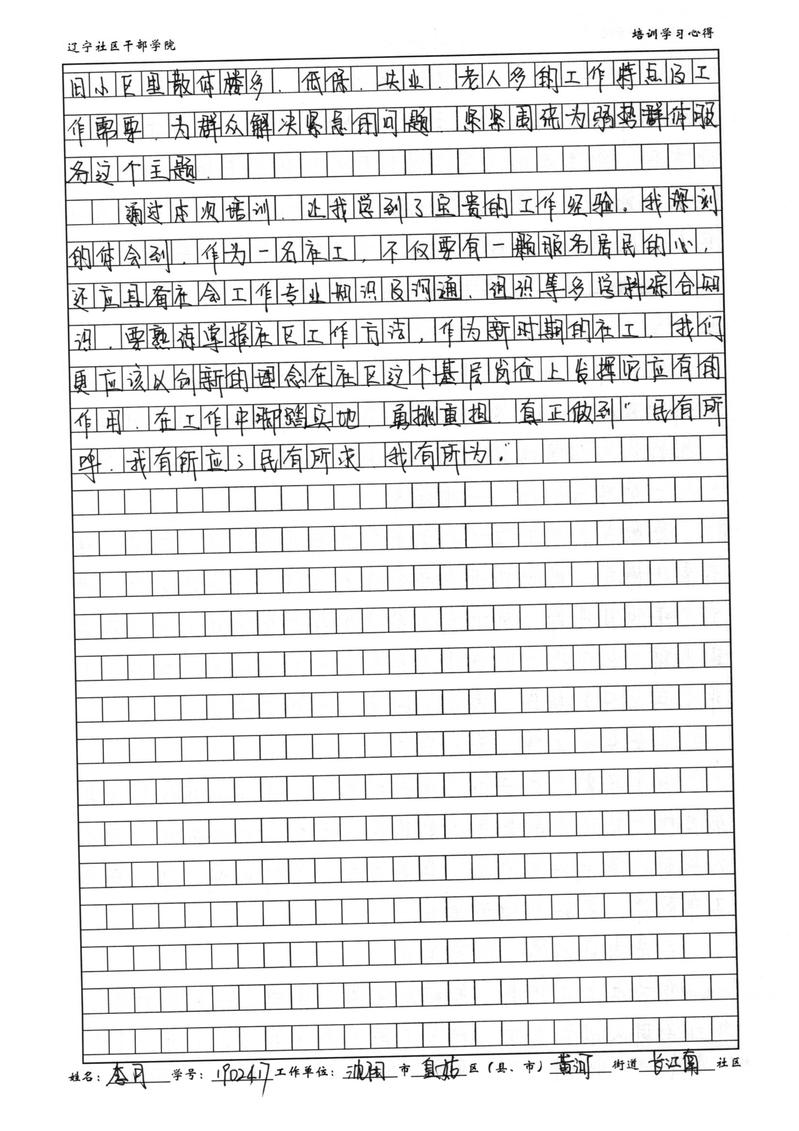 辽宁社区干部学院
培训学习心得
旧小区里散体楼多、低保、失业、老人多的工作特点及工
作需要,为群众解决紧急用问题,紧紧围绕为弱势群体服
务这个主题。
通过本次培训,让我学到了宝贵的工作经验。我深刻
的体会到,作为一名社工,不仅要有一颗服务居民的心,
还应具备社会工作专业知识及沟通、组织等多学科综合知
识,要熟待掌握社区工作方法,作为新时期的社工,我们
更应该以创新的理念在社区这个基层岗位上发挥它应有的
作用,在工作中脚踏实地,勇挑重担,真正做到“民有所
呼,我有所应;民有所求,我有所为。”
姓名:李月 学号:1902417 工作单位:沈阳 市 皇姑 区(县、市)黄河 街道 长江南 社区